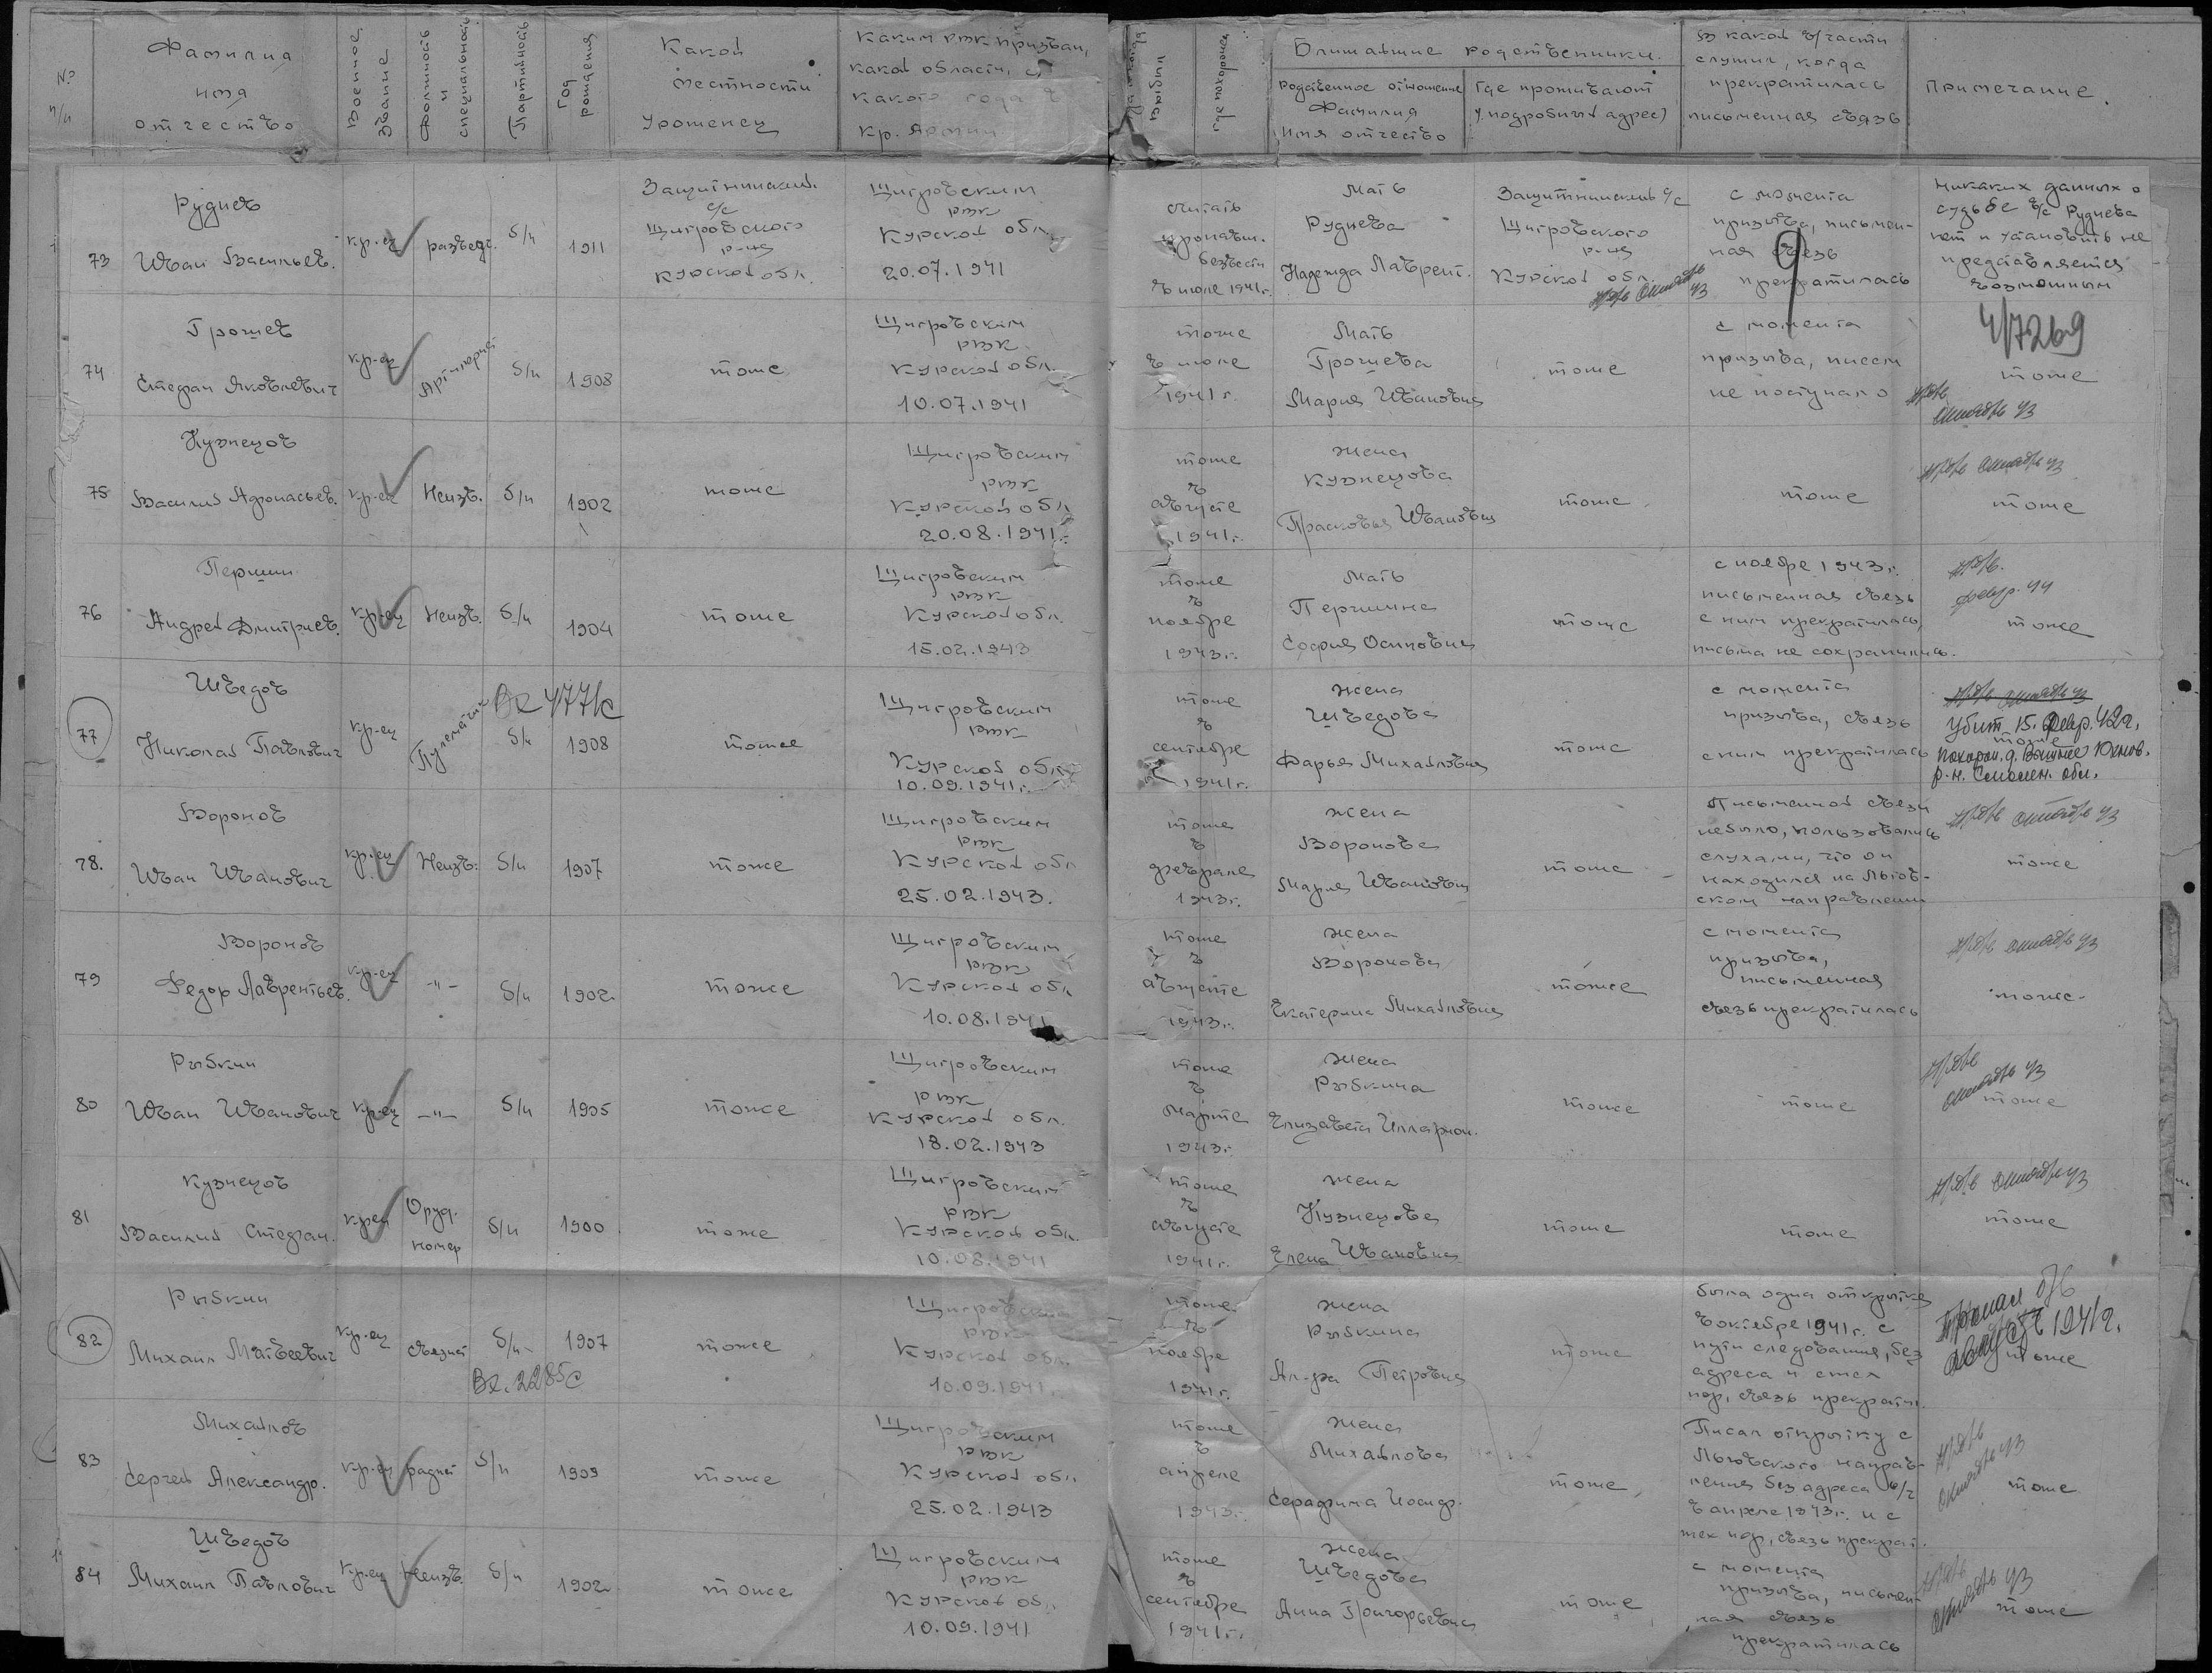 № п/п
Фамилия
имя
отчество
Военное звание
Должность и специальность
Партийность
Год рождения
Какой
местности
уроженец
Каким РВК призван,
какой области, с
какого года в
Кр. Армии
выбыл
где похоронен
Ближайшие родственники.
Родственное отношение
Фамилия
Имя отчество
Где проживают
(подробный адрес)
В какой в/части
служил, когда
прекратилась
письменная связь
Примечание.
73
Руднев
Иван Васильев.
кр-ец
разведч.
б/п
1911
Защитнинский
с/с
Щигровского
р-на
Курской обл.
Щигровским
РВК
Курской обл.
20.07.1941
считать
пропавш.
безвести
в июле 1941г.
Мать
Руднева
Надежда Лаврент.
Защитнинский с/с
Щигровского
р-на
Курской обл.
с момента
призыва, письмен-
ная связь
прекратилась
9
Никаких данных о
судьбе в/с Руднева
нет и установить не
представляется
возможным
74
Грошев
Стефан Яковлевич
кр-ец
Артиллерист
б/п
1908
тоже
Щигровским
РВК
Курской обл.
10.07.1941
тоже
в июле
1941г.
Мать
Грошева
Мария Ивановна
тоже
с момента
призыва, писем
не поступало
4/7269
тоже
октябрь 43
75
Кузнецов
Василий Афонасьев.
кр-ец
Неизв.
б/п
1902
тоже
Щигровским
РВК
Курской обл
20.08.1941г.
тоже
в
августе
1941г.
жена
Кузнецова
Прасковья Ивановна
тоже
тоже
октябрь 43
тоже
76
Першин
Андрей Дмитриев.
кр-ец
Неизв.
б/п
1904
тоже
Щигровским
РВК
Курской обл.
15.02.1943
тоже
в
ноябре
1943г.
Мать
Першина
София Осиповна
тоже
с ноября 1943г.
письменная связь
с ним прекратилась,
письма не сохранились.
февр. 44
тоже
77
Шведов
Николай Павлович
кр-ец
Пулеметчик
б/п
1908
тоже
Щигровским
РВК
Курской обл.
10.09.1941г.
тоже
в
сентябре
1941г.
жена
Шведова
Дарья Михайловна
тоже
с момента
призыва, связь
с ним прекратилась
октябрь 43
Убит 15. февр. 42г.
тоже
Юхнов.
р-н. Смолен. обл.
78.
Воронов
Иван Иванович
кр-ец
Неизв.
б/п
1907
тоже
Щигровским
РВК
Курской обл
25.02.1943.
тоже
в
феврале
1943г.
жена
Воронова
Мария Ивановна
тоже
Письменной связи
небыло, пользовались
слухами, что он
находился на Льгов-
ском направлении
октябрь 43
тоже
79
Воронов
Федор Лаврентьев.
кр-ец
-"-
б/п
1902
тоже
Щигровским
РВК
Курской обл
10.08.1941
тоже
в
августе
1943г.
жена
Воронова
Екатерина Михайловна
тоже
с момента
призыва,
письменная
связь прекратилась
октябрь 43
тоже
80
Рыбкин
Иван Иванович
кр-ец
-"-
б/п
1905
тоже
Щигровским
РВК
Курской обл.
18.02.1943
тоже
в
марте
1943г.
жена
Рыбкина
Елизавета Илларион.
тоже
тоже
октябрь 43
тоже
81
Кузнецов
Василий Стефан.
кр-ец
Оруд.
номер
б/п
1900
тоже
Щигровским
РВК
Курской обл.
10.08.1941
тоже
в
августе
1941г.
жена
Кузнецова
Елена Ивановна
тоже
тоже
октябрь 43
тоже
82
Рыбкин
Михаил Матвеевич
кр-ец
связист
б/п
Вх. 2285с
1907
тоже
Щигровским
РВК
Курской обл.
10.09.1941
тоже
в
ноябре
1941г.
жена
Рыбкина
Ал-ра Петровна
тоже
была одна открытка
в октябре 1941г. с
пути следования, без
адреса и с тех
пор, связь прекрати.
Пропал б/в
август 1941г.
тоже
83
Михайлов
Сергей Александр.
кр-ец
радист
б/п
1909
тоже
Щигровским
РВК
Курской обл.
25.02.1943
тоже
в
апреле
1943г.
жена
Михайлова
Серафима Иосиф.
тоже
Писал открытку с
Льговского направ-
ления без адреса в/ч
в апреле 1943г. и с
тех пор, связь прекрат.
октябрь 43
тоже
84
Шведов
Михаил Павлович
кр-ец
Неизв.
б/п
1902
тоже
Щигровским
РВК
Курской обл.
10.09.1941
тоже
в
сентябре
1941г.
жена
Шведова
Анна Григорьевна
тоже
с момента
призыва, письмен-
ная связь
прекратилась
октябрь 43
тоже